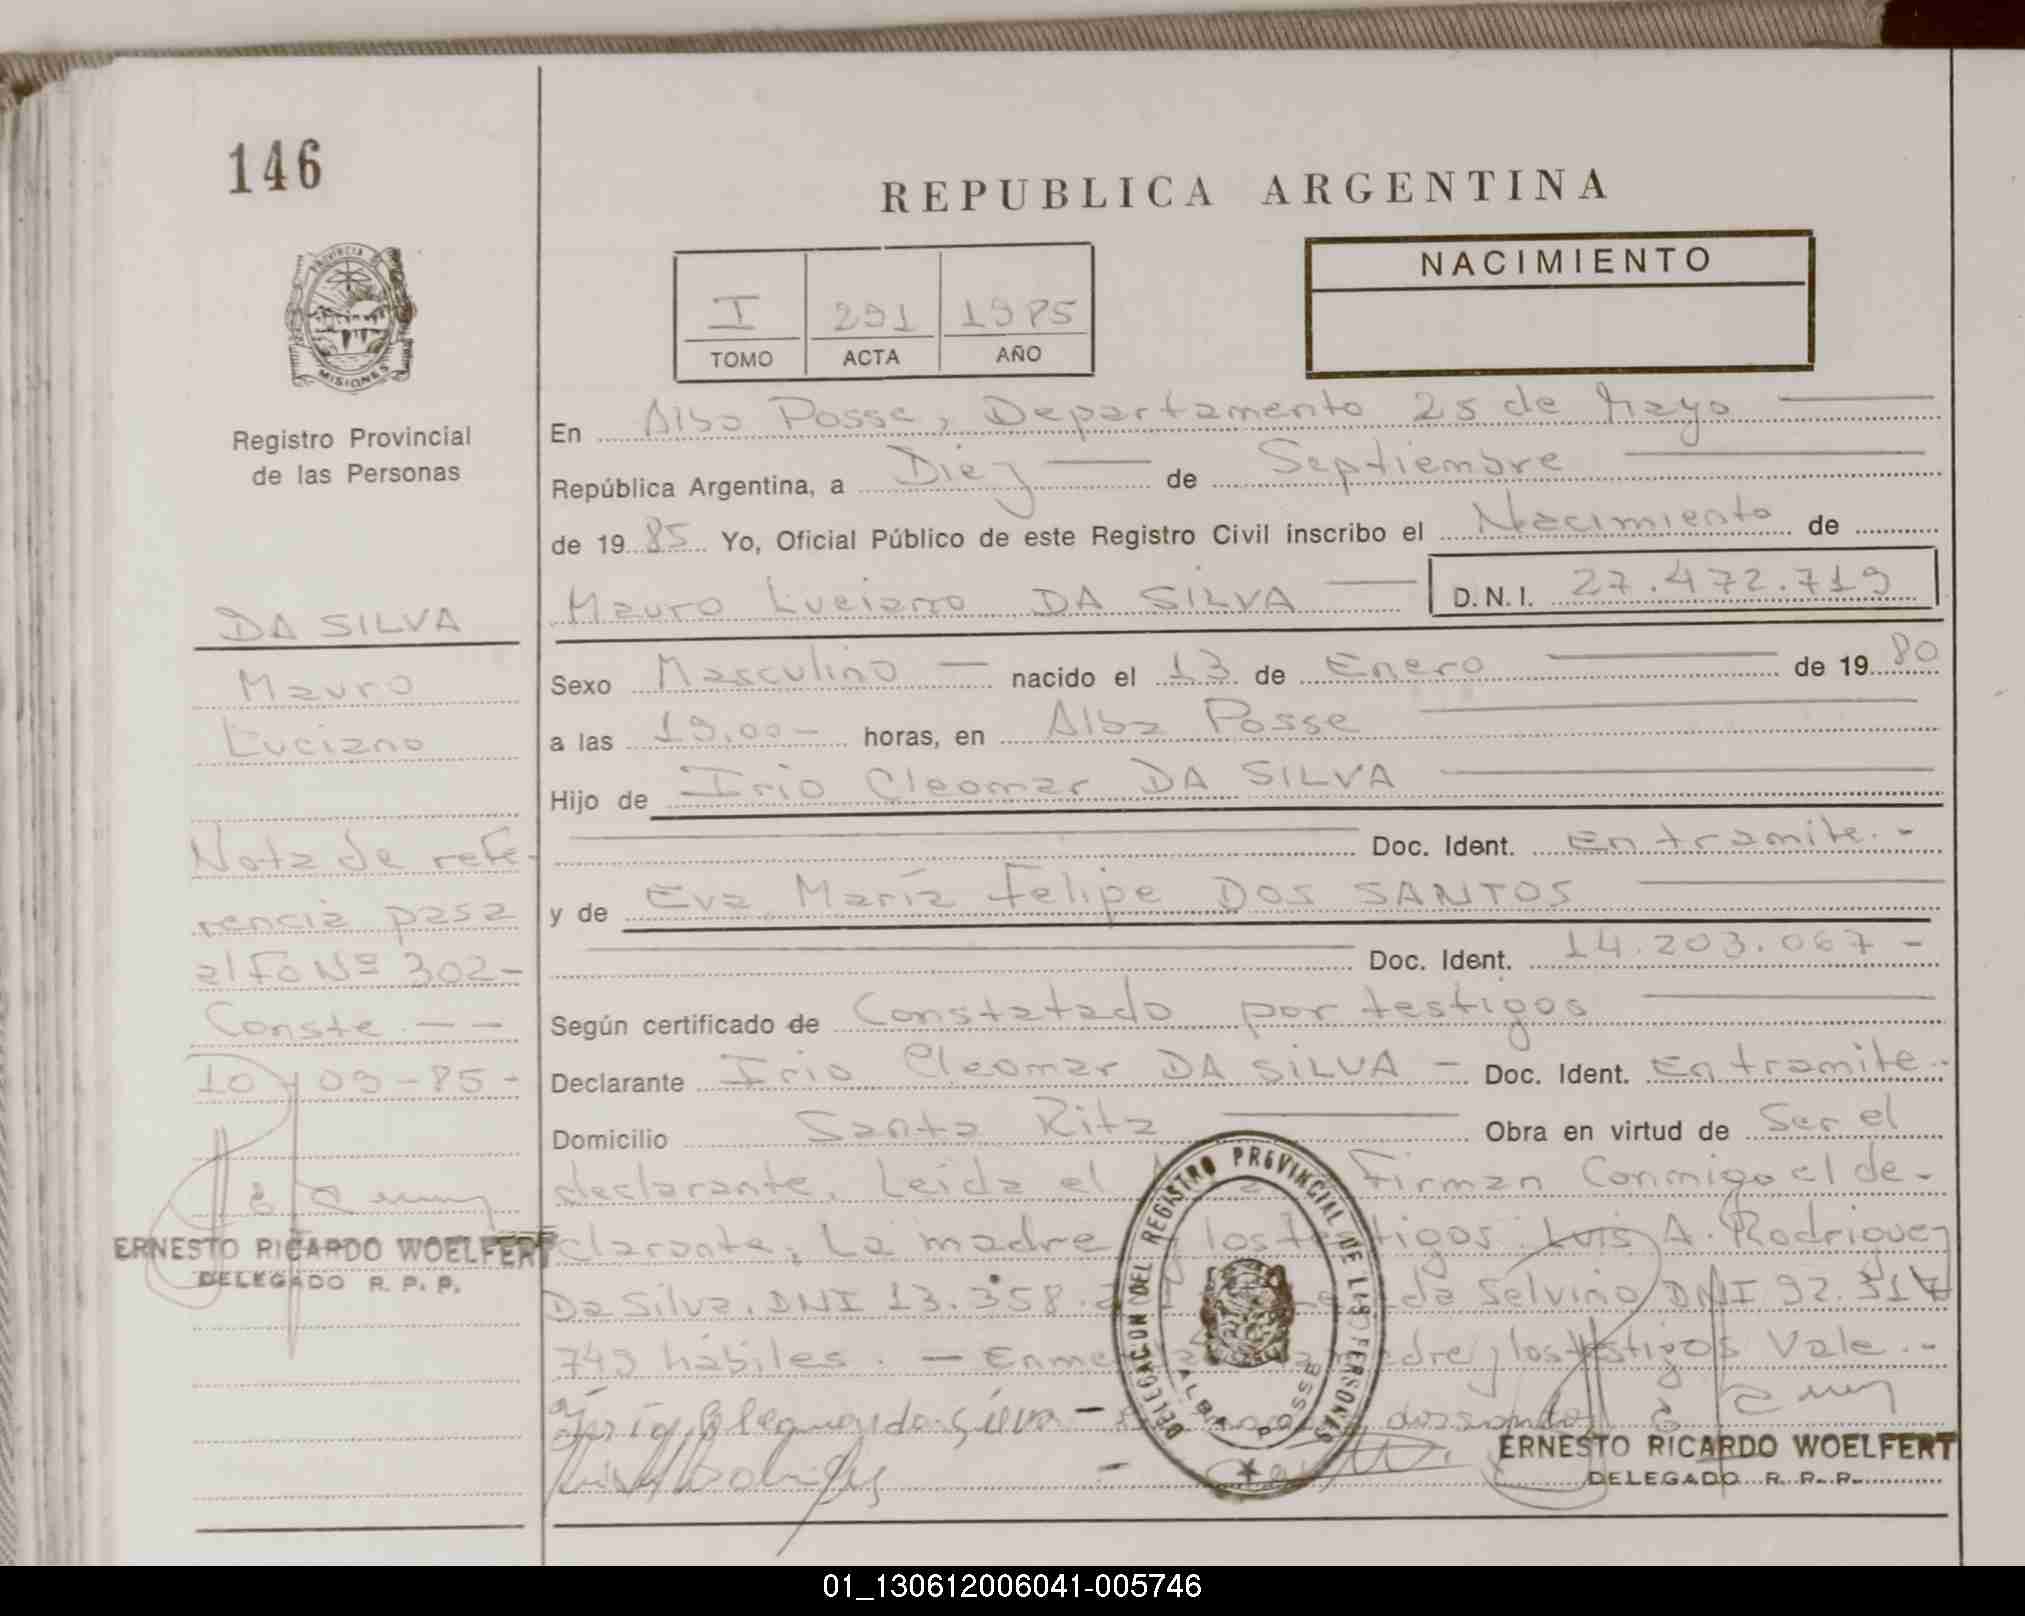 146
REPUBLICA ARGENTINA
NACIMIENTO
I 291 1985
TOMO ACTA AÑO
PROVINCIA
MISIONES
Registro Provincial
de las Personas
DA SILVA
Mauro
Luciano
Nota de refe-
rencia pasa
al Fo Nº 302-
Conste. - -
10-09-85-
ERNESTO RICARDO WOELFERT
DELEGADO R. P. P.
En Alba Posse, Departamento 25 de Mayo
República Argentina, a Diez de Septiembre
de 19 85 Yo, Oficial Público de este Registro Civil inscribo el Nacimiento de
Mauro Luciano DA SILVA D.N.I. 27.472.719
Sexo Masculino nacido el 13 de Enero de 19 80
a las 19,00- horas, en Alba Posse
Hijo de Irio Cleomar DA SILVA
Doc. Ident. En tramite.-
y de Eva María Felipe DOS SANTOS
Doc. Ident. 14.203.067-
Según certificado de Constatado por testigos
Declarante Irio Cleomar DA SILVA - Doc. Ident. En tramite.-
Domicilio Santa Rita Obra en virtud de Ser el
declarante. Leida el Firman Conmigo el de-
clarante, La madre y los testigos Luis A. Rodriguez
Da Silva, DNI 13.358. da Selvino DNI 92.317
749 hábiles. - madre y los testigos Vale.-
ERNESTO RICARDO WOELFERT
DELEGADO R. R. P.
DELEGACION DEL REGISTRO PROVINCIAL DE LAS PERSONAS
ALBA POSSE
01_130612006041-005746